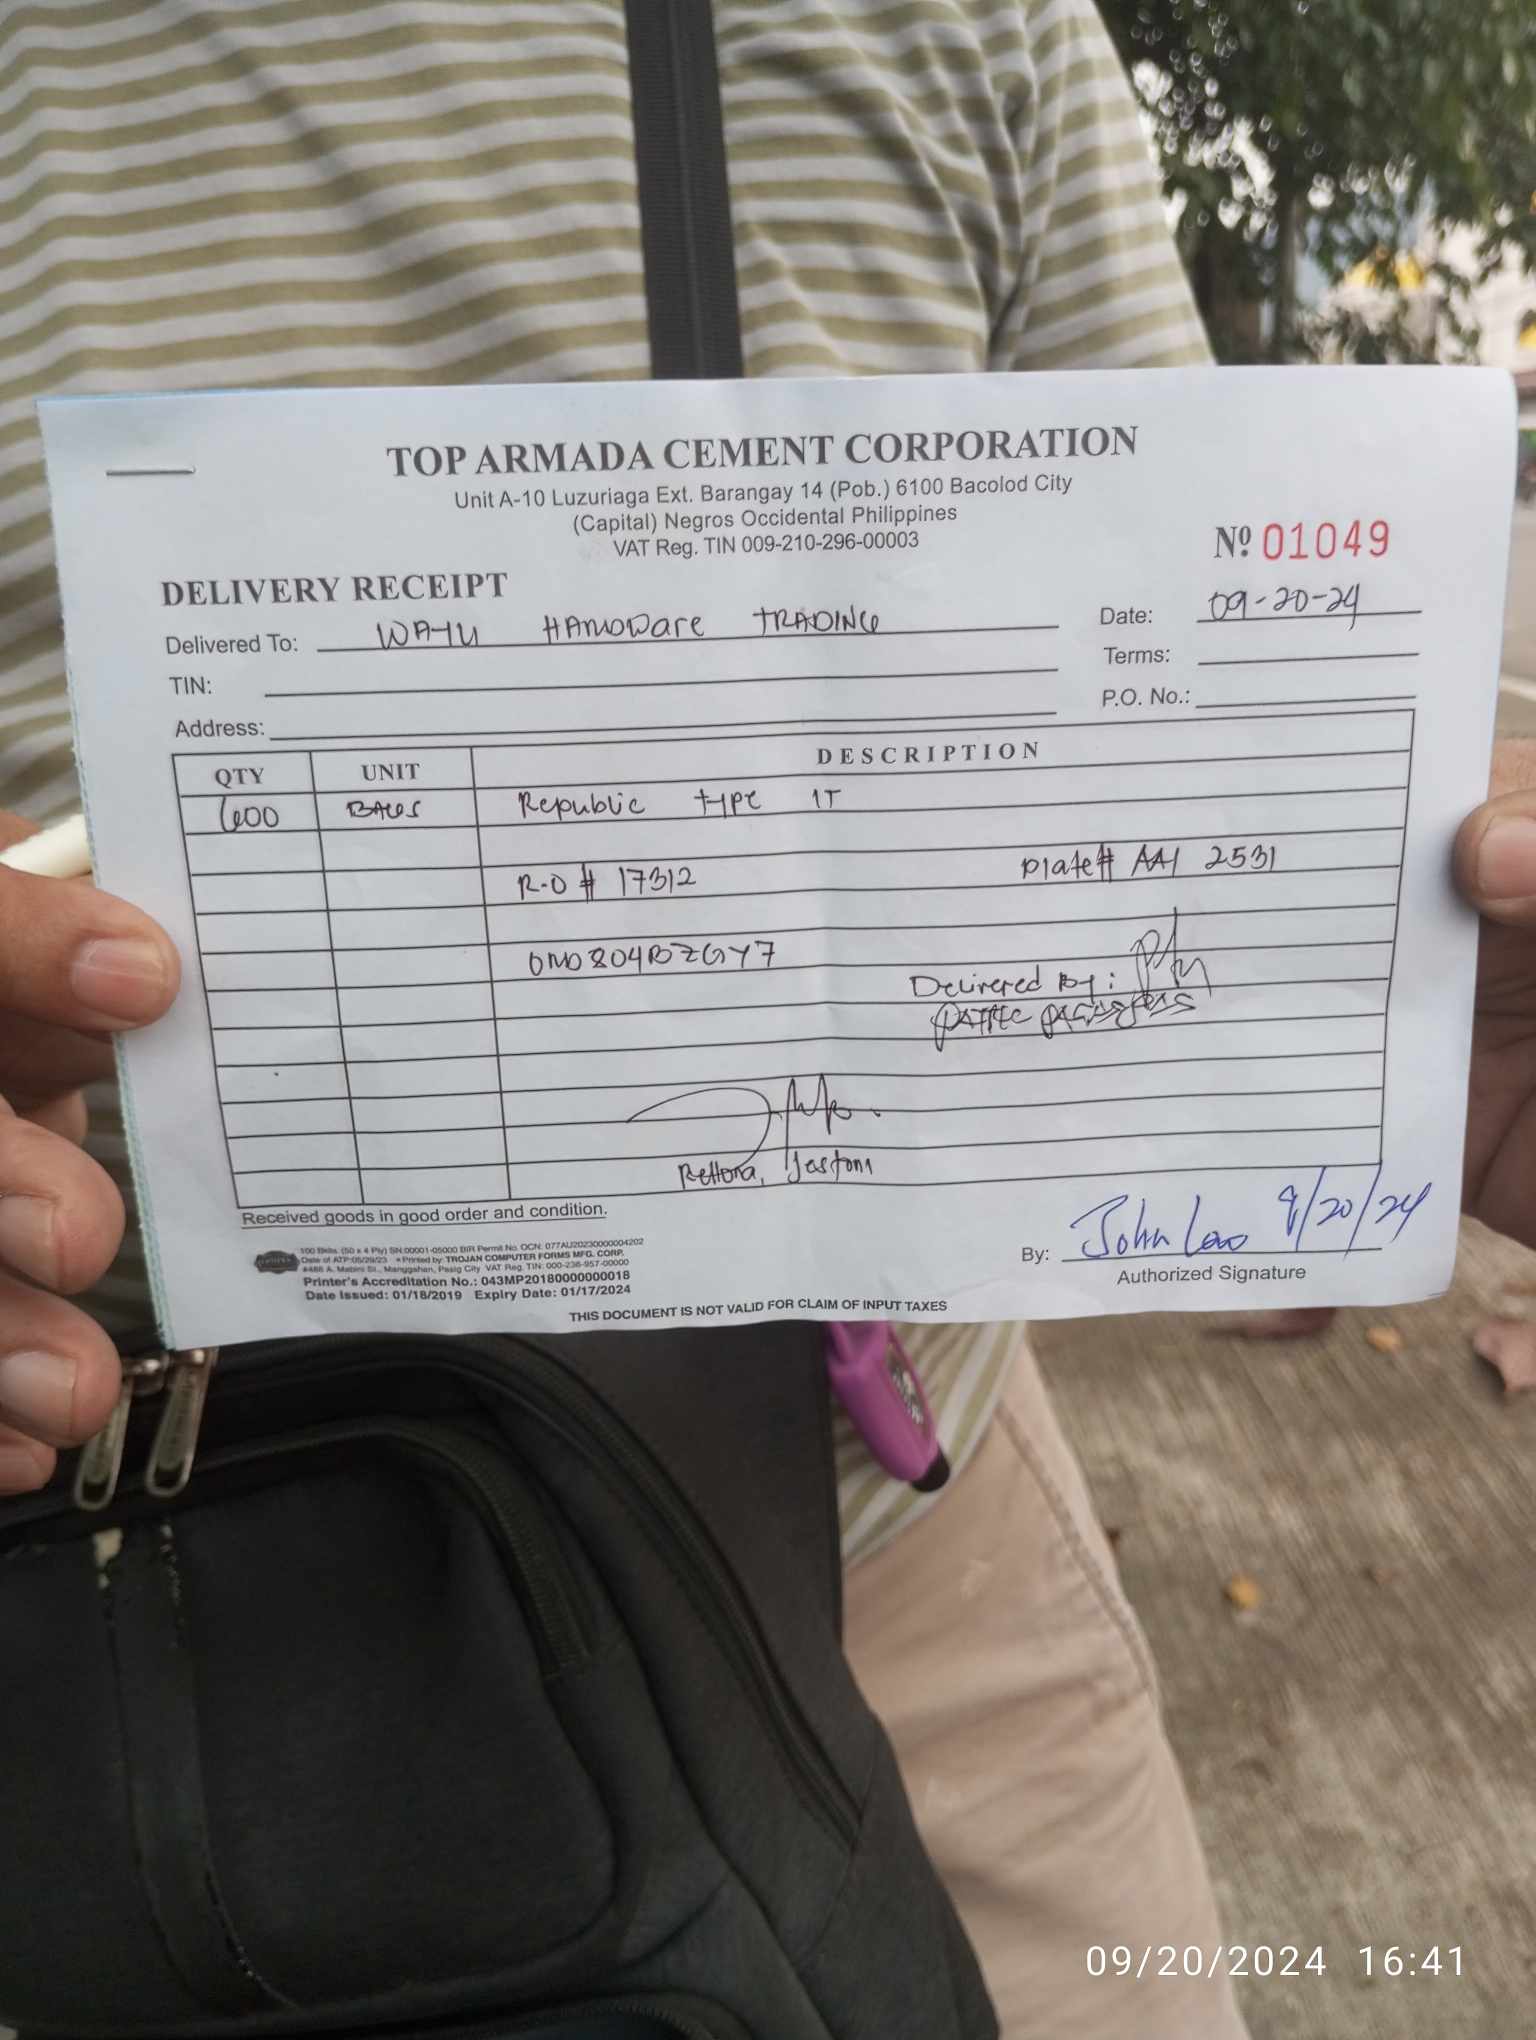 TOP ARMADA CEMENT CORPORATION
Unit A-10 Luzuriaga Ext. Barangay 14 (Pob.) 6100 Bacolod City
(Capital) Negros Occidental Philippines
VAT Reg. TIN 009-210-296-00003
Nº 01049
DELIVERY RECEIPT
Delivered To: WAYU HARDWare TRADING
Date: 09-20-24
TIN:
Terms:
Address:
P.O. No.:
QTY UNIT DESCRIPTION
600 BAGS Republic type 1T
R-O # 17312 Plate# AAI 2531
0N0804BZGY7
Delivered By:
Jastoni
Received goods in good order and condition.
100 Bklts. (50 x 4 Ply) SN:00001-05000 BIR Permit No. OCN: 077AU20230000004202
Date of ATP:05/29/23 *Printed by: TROJAN COMPUTER FORMS MFG. CORP.
#486 A. Mabini St., Manggahan, Pasig City VAT Reg. TIN: 000-236-957-00000
Printer's Accreditation No.: 043MP20180000000018
Date Issued: 01/18/2019 Expiry Date: 01/17/2024
By: John Lao 9/20/24
Authorized Signature
THIS DOCUMENT IS NOT VALID FOR CLAIM OF INPUT TAXES
09/20/2024 16:41